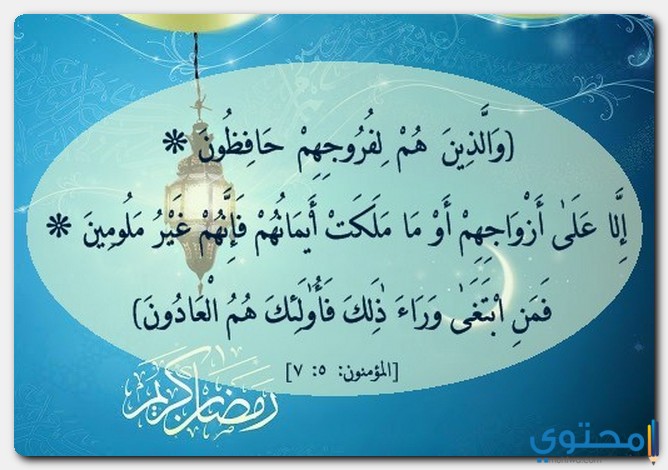 (وَالَّذِينَ هُمْ لِفُرُوجِهِمْ حَافِظُونَ *
إِلَّا عَلَىٰ أَزْوَاجِهِمْ أَوْ مَا مَلَكَتْ أَيْمَانُهُمْ فَإِنَّهُمْ غَيْرُ مَلُومِينَ *
فَمَنِ ابْتَغَىٰ وَرَاءَ ذَٰلِكَ فَأُولَٰئِكَ هُمُ الْعَادُونَ)
[المؤمنون: ٥: ٧]
رمضان كريم
محتوي